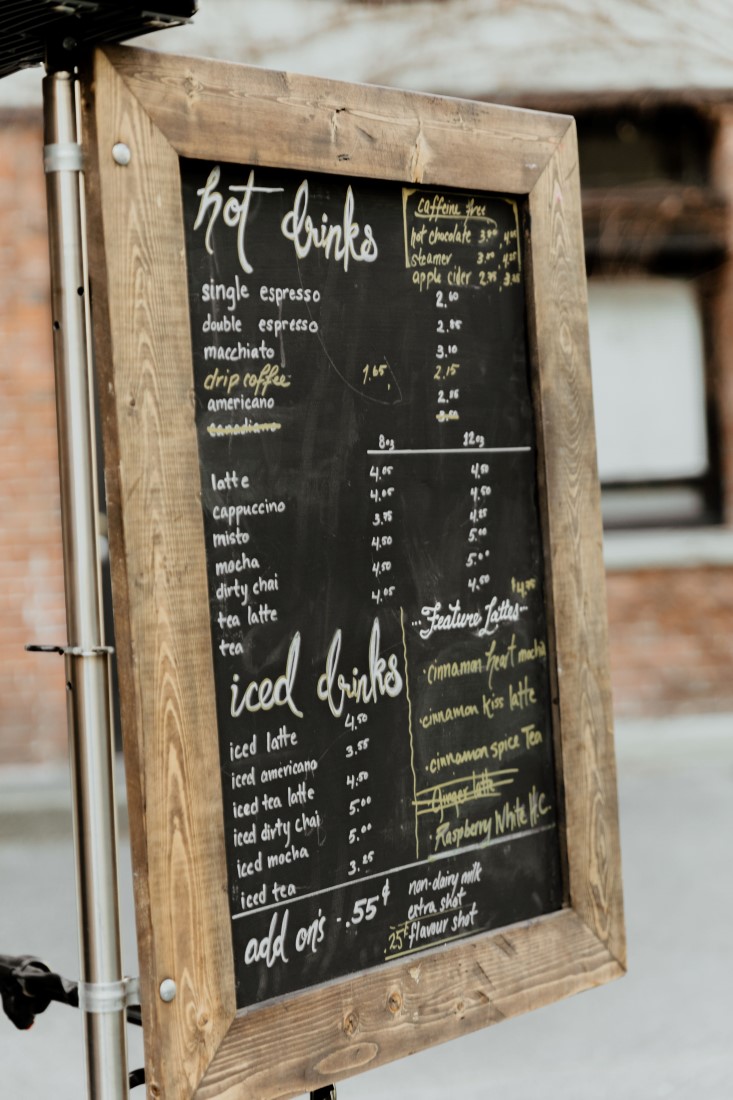 hot drinks
caffeine free
hot chocolate 3.00, 4.00
steamer 3.00, 4.25
apple cider 2.75, 3.25
single espresso 2.60
double espresso 2.85
macchiato 3.10
drip coffee 1.65, 2.15
americano 2.85
canadiano
8oz 12oz
latte 4.05 4.50
cappuccino 4.05 4.50
misto 3.75 4.25
mocha 4.50 5.00
dirty chai 4.50 5.00
tea latte 4.05 4.50
tea
iced drinks
iced latte 4.50
iced americano 3.55
iced tea latte 4.50
iced dirty chai 5.00
iced mocha 5.00
iced tea 3.25
$4.75
~Feature Lattes~
·cinnamon heart mocha
·cinnamon kiss latte
·cinnamon spice Tea
Ginger latte
·Raspberry White H.C.
add on's -.55¢
non-dairy milk
extra shot
.25¢ flavour shot